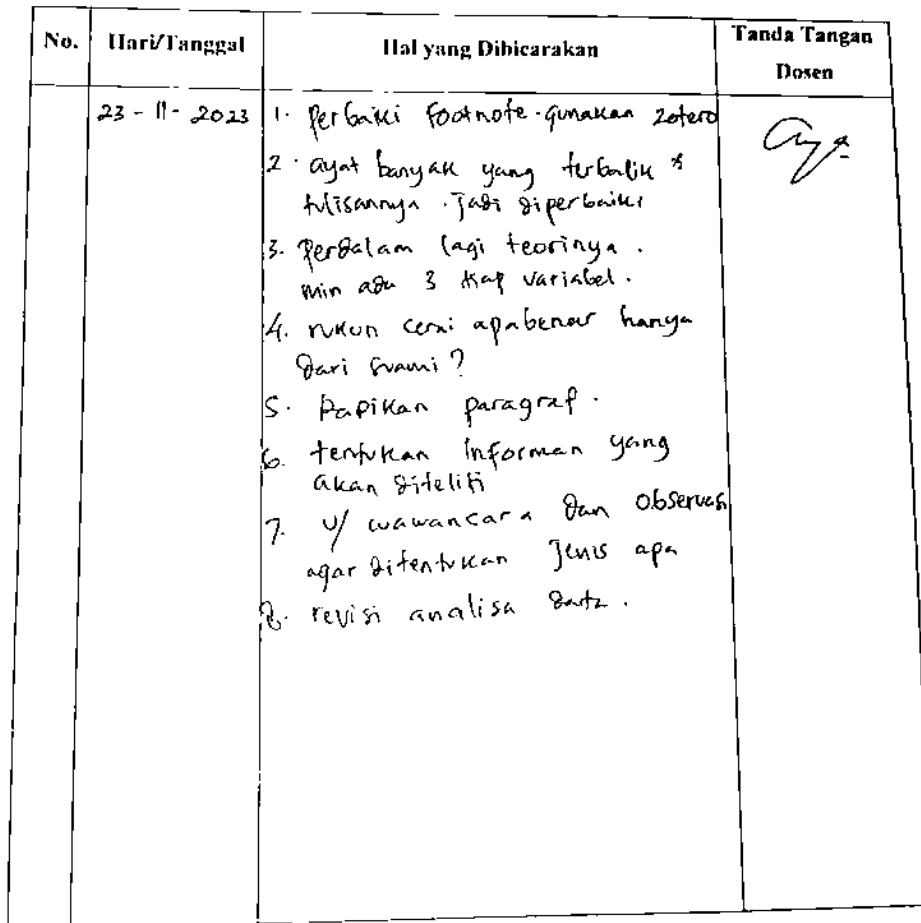 No. Hari/Tanggal Hal yang Dibicarakan Tanda Tangan
Dosen
23 - 11 - 2023 1. Perbaiki footnote. gunakan zotero
2. ayat banyak yang terbalik²
tulisannya. Jadi diperbaiki
3. Perdalam lagi teorinya.
min ada 3 tiap variabel.
4. rukun cerai apa benar hanya
dari suami?
5. Rapikan paragraf.
6. tentukan informan yang
akan diteliti
7. U/ wawancara dan Observasi
agar ditentukan Jenis apa
8. revisi analisa data.